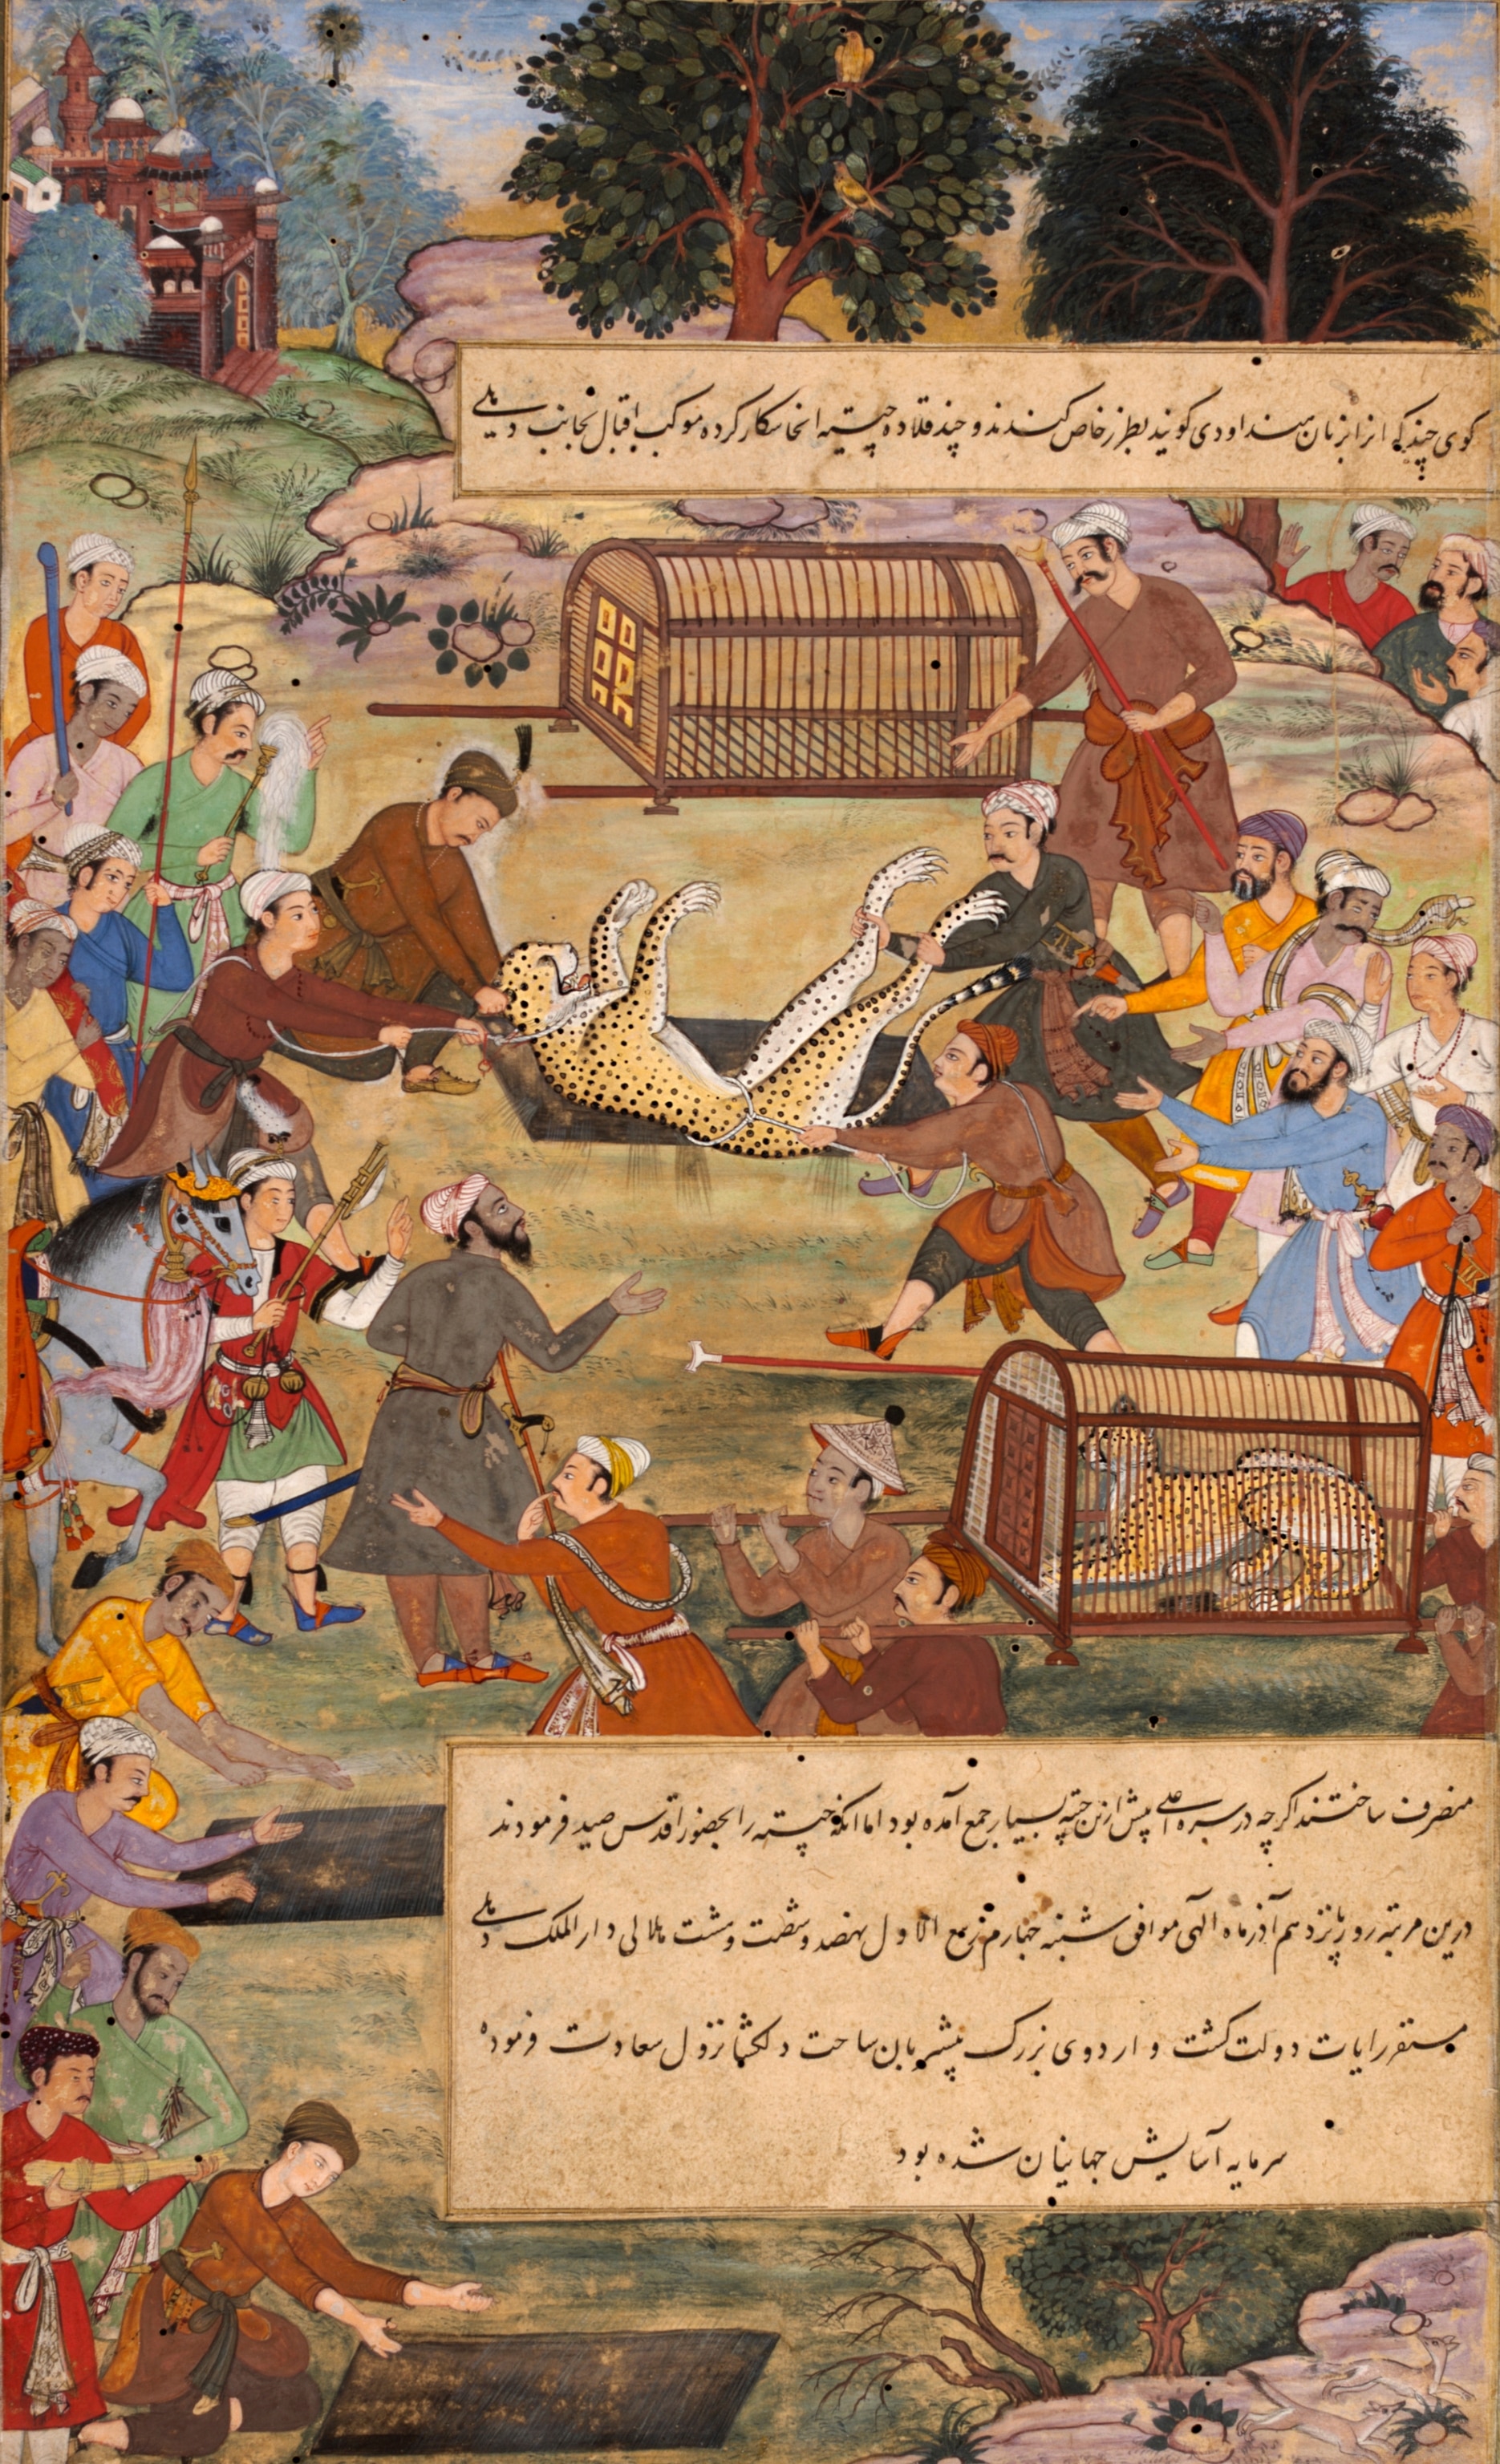 کوی چند که آنرا بزبان هند اودی کویند بطرز خاص کندند و چند قلاده چیته انجا شکار کرده موکب اقبال بجانب دهلی
منصرف ساختند اکرچه در سرکار اعلی پیش ازین چیته بسیار جمع آمده بود اما آنکه چیته را بحضور اقدس صید فرمودند
درین مرتبه روز پانزدهم آذرماه الهی موافق شنبه چهارم ربیع الاول نهصد و شصت و هشت هلالی دار الملک دهلی
مستقر رایات دولت کشت و اردوی بزرک پیشتر بان ساحت دلکشا نزول سعادت فرموده
سرمایه آسایش جهانیان شده بود